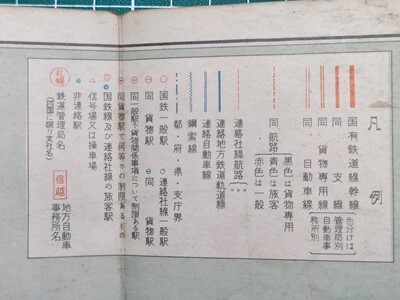 凡例
国有鉄道線幹線
同 支線
同 貨物専用線
同 自動車線
(色分けは管理局別自動車事務所別)
連絡社線航路
同航路
黒色は貨物専用
青色は旅客
赤色は一般
連絡地方鉄道軌道線
連絡自動車線
鋼索線
都・府・県・支庁界
国鉄一般駅
連絡社線一般駅
同 貨物駅
同 貨物駅
同一般駅で貨物関係事項について制限ある駅
同貨物駅で何等かの制限あるもの
国鉄線及び連絡社線の旅客駅
信号場又は操車場
非連絡駅
札幌
鉄道管理局名
(四国に限り支社名)
信越
地方自動車事務所名